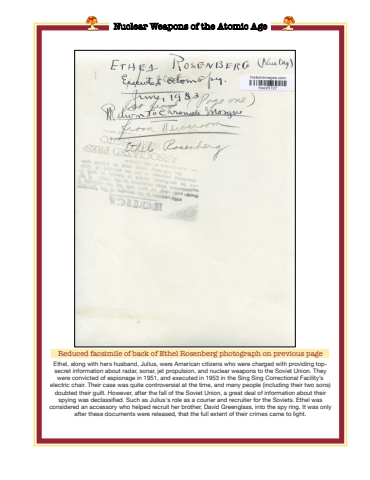 Nuclear Weapons of the Atomic Age
ETHEL ROSENBERG (Nuclag)
Executed Atom Spy.
June, 1953
(Page one)
Return to Chronicle Morgue
from Newsroom
Ethel Rosenberg
historicimages.com
Reduced facsimile of back of Ethel Rosenberg photograph on previous page
Ethel, along with hers husband, Julius, were American citizens who were charged with providing top-
secret information about radar, sonar, jet propulsion, and nuclear weapons to the Soviet Union. They
were convicted of espionage in 1951, and executed in 1953 in the Sing Sing Correctional Facility's
electric chair. Their case was quite controversial at the time, and many people (including their two sons)
doubted their guilt. However, after the fall of the Soviet Union, a great deal of information about their
spying was declassified. Such as Julius's role as a courier and recruiter for the Soviets. Ethel was
considered an accessory who helped recruit her brother, David Greenglass, into the spy ring. It was only
after these documents were released, that the full extent of their crimes came to light.